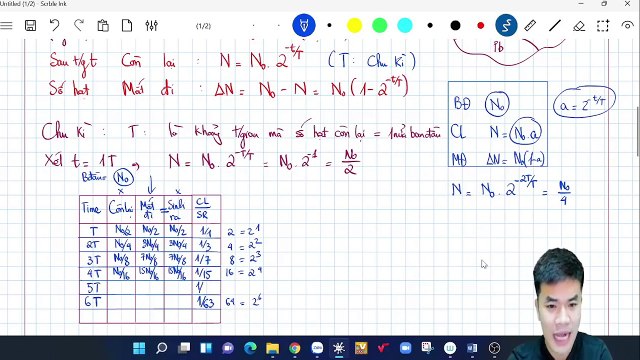 Untitled (1/2) - Scrble Ink
(1/2)
Pb
Sau t/g,t Còn lại : N = N₀.2^-t/T (T: Chu kì)
Số hạt Mất đi : ΔN = N₀ - N = N₀(1-2^-t/T)
BĐ N₀ a = 2^-t/T
CL N = N₀.a
MĐ ΔN = N₀(1-a)
Chu kì : T: là khoảng t/gian mà số hạt còn lại = 1 nửa ban đầu
Xét t = 1T → N = N₀.2^-T/T = N₀.2^-1 = N₀/2
N = N₀.2^-2T/T = N₀/4
Bđầu = N₀
x x
Time Còn lại Mất đi = Sinh ra CL/SR
T N₀/2 N₀/2 N₀/2 1/1 2 = 2^1
2T N₀/4 3N₀/4 3N₀/4 1/3 4 = 2^2
3T N₀/8 7N₀/8 7N₀/8 1/7 8 = 2^3
4T N₀/16 15N₀/16 15N₀/16 1/15 16 = 2^4
5T 1/
6T 1/63 64 = 2^6